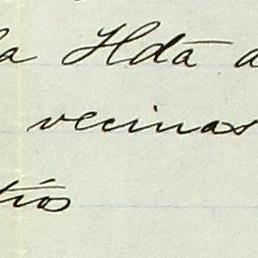 la Hdā a
vecinas
tíos